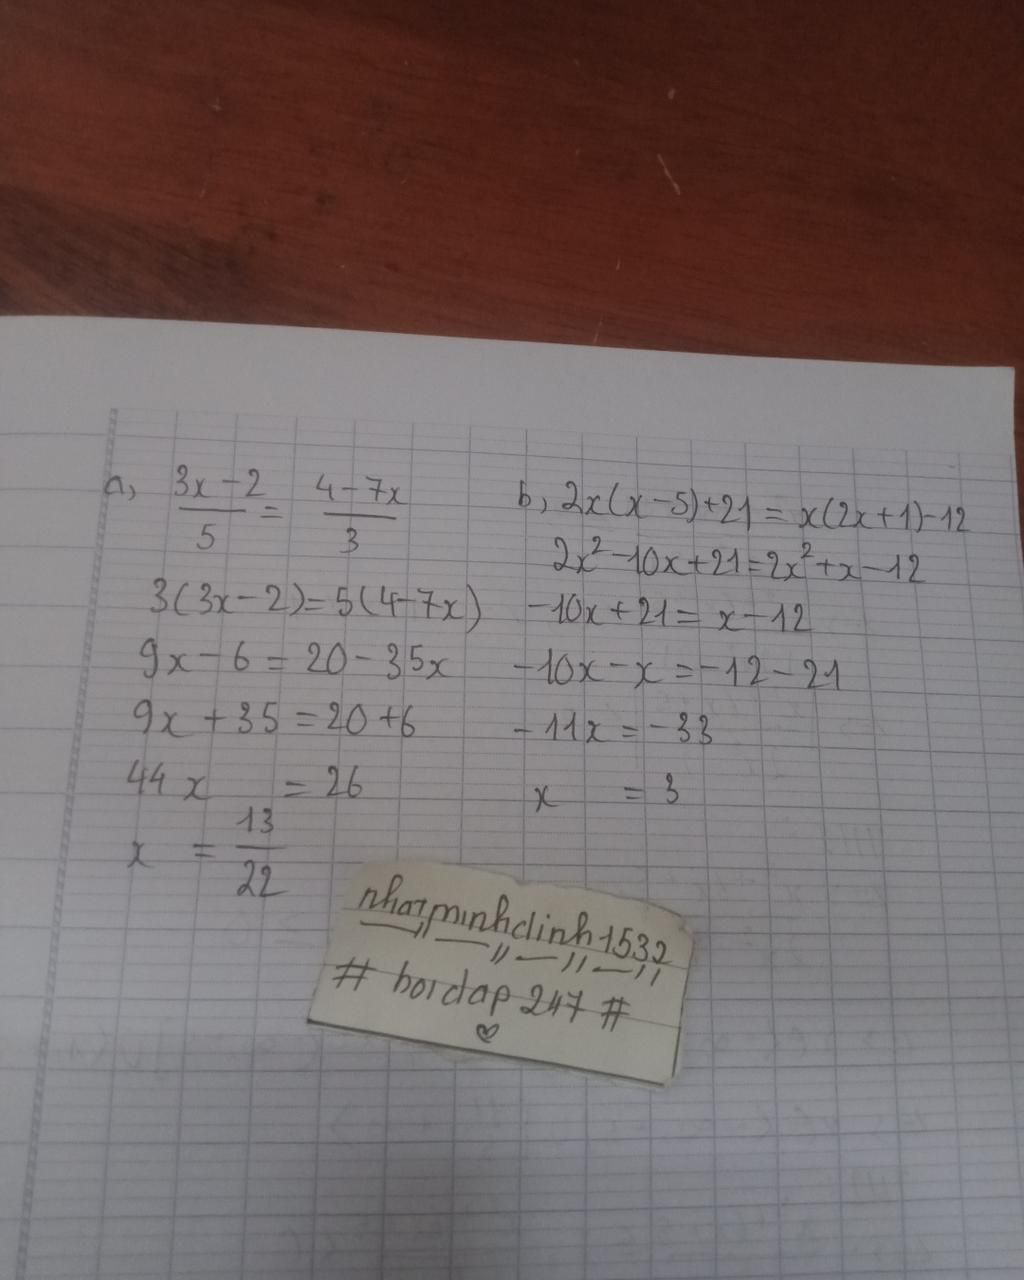 a, (3x-2)/5 = (4-7x)/3
3(3x-2)=5(4-7x)
9x-6=20-35x
9x+35=20+6
44x =26
x = 13/22
b, 2x(x-5)+21=x(2x+1)-12
2x²-10x+21=2x²+x-12
-10x+21=x-12
-10x-x=-12-21
-11x=-33
x =3
nhatminhdinh1532
# hoidap 247 #